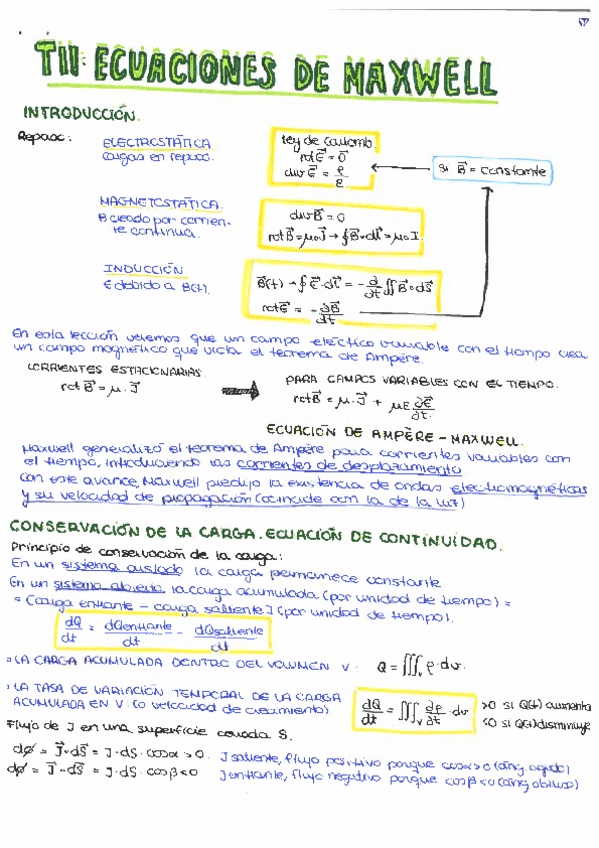 T11: ECUACIONES DE MAXWELL
INTRODUCCIÓN.
Repaso:
ELECTROSTÁTICA
cargas en reposo.
Ley de Coulomb
rot E⃗ = 0⃗
div E⃗ = ρ/ε
si B⃗ = constante
MAGNETOSTÁTICA.
B creado por corrien-
te continua.
div B⃗ = 0
rot B⃗ = μ₀J⃗ → ∮B⃗·dl⃗ = μ₀I
INDUCCIÓN
E debido a B(t).
B⃗(t) → ∮E⃗·dl⃗ = -∂/∂t ∬B⃗·dS⃗
rot E⃗ = -∂B⃗/∂t
En esta lección veremos que un campo eléctrico variable con el tiempo crea
un campo magnético que viola el teorema de Ampère.
CORRIENTES ESTACIONARIAS
rot B⃗ = μ·J⃗
PARA CAMPOS VARIABLES CON EL TIEMPO.
rot B⃗ = μ·J⃗ + με ∂E⃗/∂t
ECUACIÓN DE AMPÈRE - MAXWELL.
Maxwell generalizó el teorema de Ampère para corrientes variables con
el tiempo, introduciendo las corrientes de desplazamiento
Con este avance, Maxwell predijo la existencia de ondas electromagnéticas
y su velocidad de propagación (coincide con la de la luz)
CONSERVACIÓN DE LA CARGA. ECUACIÓN DE CONTINUIDAD.
Principio de conservación de la carga:
En un sistema aislado la carga permanece constante
En un sistema abierto, la carga acumulada (por unidad de tiempo) =
= [carga entrante - carga saliente] (por unidad de tiempo).
dQ/dt = dQentrante/dt - dQsaliente/dt
LA CARGA ACUMULADA DENTRO DEL VOLUMEN V: Q = ∭ᵥ ρ·dv.
LA TASA DE VARIACIÓN TEMPORAL DE LA CARGA
ACUMULADA EN V. (o velocidad de crecimiento)
dQ/dt = ∭ᵥ ∂ρ/∂t · dv
>0 si Q(t) aumenta
<0 si Q(t) disminuye
Flujo de J en una superficie cerrada S.
dø = J⃗·dS⃗ = J·dS·cosα > 0. J saliente, flujo positivo porque cosα>0 (áng. agudo)
dø = J⃗·dS⃗ = J·dS·cosβ < 0 J entrante, flujo negativo porque cosβ<0 (áng. obtuso)